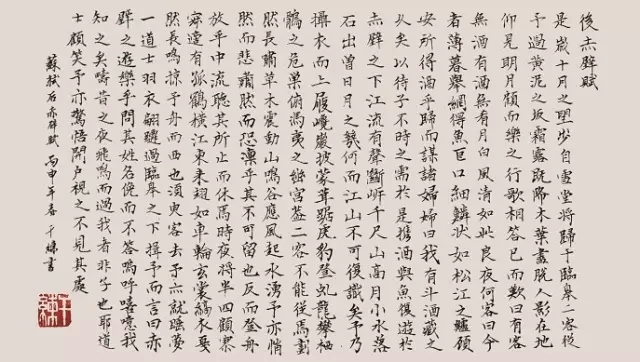 後赤壁賦
是歲十月之望步自雪堂將歸于臨皋二客從
予過黃泥之坂霜露既降木葉盡脫人影在地
仰見明月顧而樂之行歌相答已而歎曰有客
無酒有酒無肴月白風清如此良夜何客曰今
者薄暮舉網得魚巨口細鱗狀如松江之鱸顧
安所得酒乎歸而謀諸婦婦曰我有斗酒藏之
久矣以待子不時之需於是攜酒與魚復遊於
赤壁之下江流有聲斷岸千尺山高月小水落
石出曾日月之幾何而江山不可復識矣予乃
攝衣而上履巉巖披蒙茸踞虎豹登虬龍攀栖
鶻之危巢俯馮夷之幽宮蓋二客不能從焉劃
然長嘯草木震動山鳴谷應風起水湧予亦悄
然而悲肅然而恐凜乎其不可留也反而登舟
放乎中流聽其所止而休焉時夜將半四顧寂
寥適有孤鶴橫江東來翅如車輪玄裳縞衣戛
然長鳴掠予舟而西也須臾客去予亦就睡夢
一道士羽衣翩躚過臨皋之下揖予而言曰赤
壁之遊樂乎問其姓名俛而不答嗚呼噫嘻我
知之矣疇昔之夜飛鳴而過我者非子也耶道
士顧笑予亦驚悟開戶視之不見其處
蘇軾后赤壁賦 丙申年春 千 書